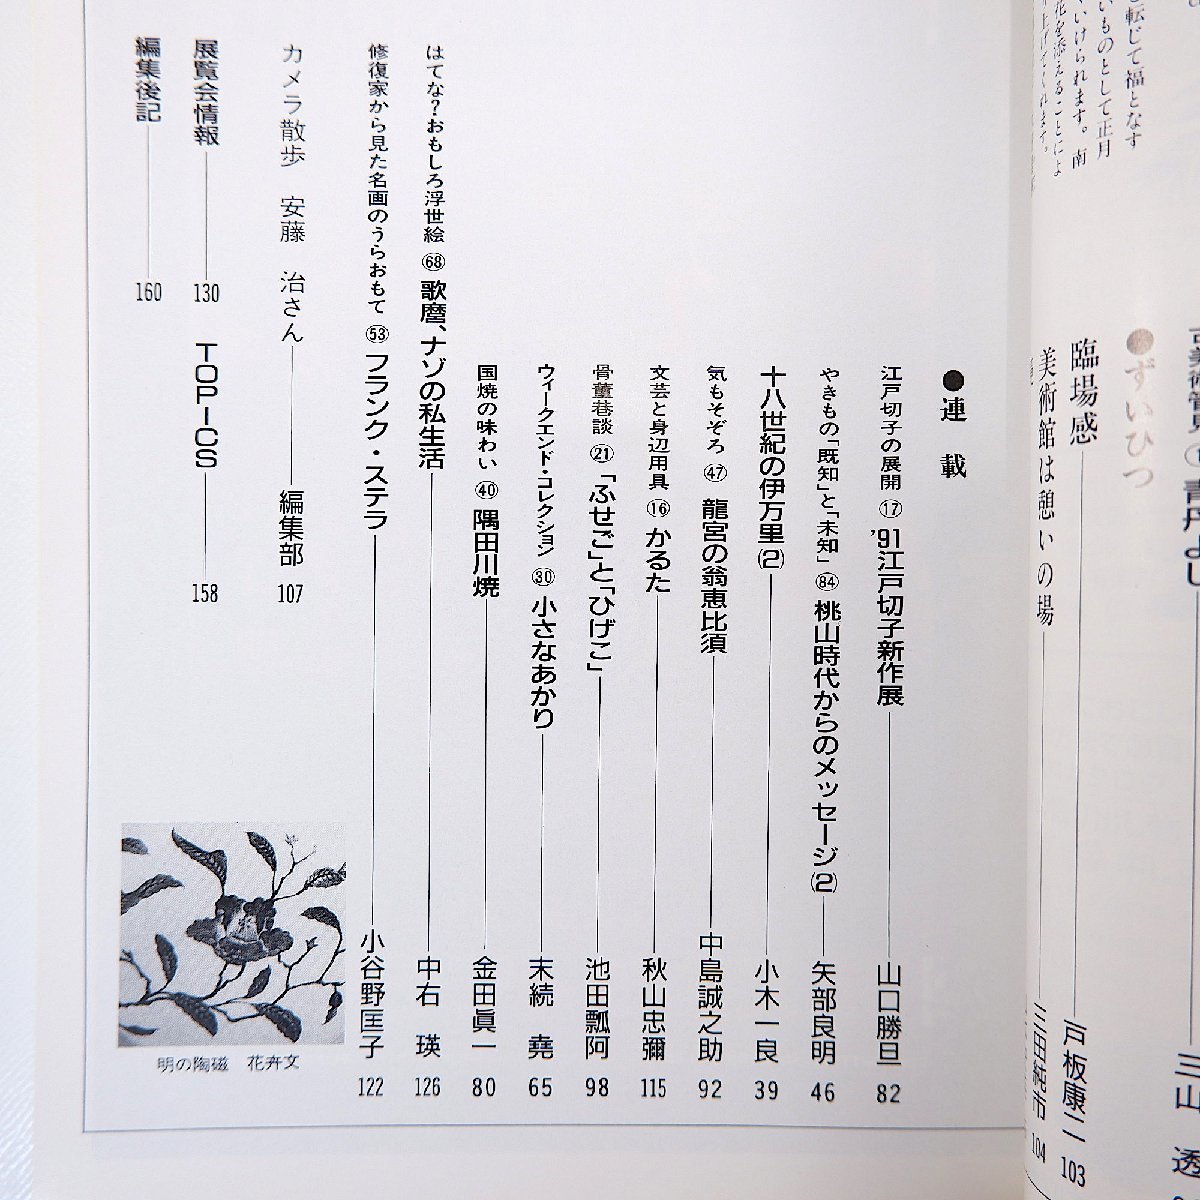 転じて福となす
いものとして正月
いいけられます。南
花を添えることによ
り上げてくれます。
青丹よし
三山 透
●ずいひつ
臨場感 戸板康二 103
美術館は憩いの場 三田純市 104
●連載
江戸切子の展開⑰'91江戸切子新作展 山口勝旦 82
やきもの「既知」と「未知」(84)桃山時代からのメッセージ(2) 矢部良明 46
十八世紀の伊万里(2) 小木一良 39
気もそぞろ㊼龍宮の翁恵比須 中島誠之助 92
文芸と身辺用具⑯かるた 秋山忠彌 115
骨董巷談㉑「ふせご」と「ひげこ」 池田瓢阿 98
ウィークエンド・コレクション㉚小さなあかり 末続 堯 65
国焼の味わい㊵隅田川焼 金田眞一 80
はてな?おもしろ浮世絵(68)歌麿、ナゾの私生活 中右 瑛 126
修復家から見た名画のうらおもて(53)フランク・ステラ 小谷野匡子 122
カメラ散歩 安藤 治さん 編集部 107
展覧会情報 130
TOPICS 158
編集後記 160
明の陶磁 花卉文